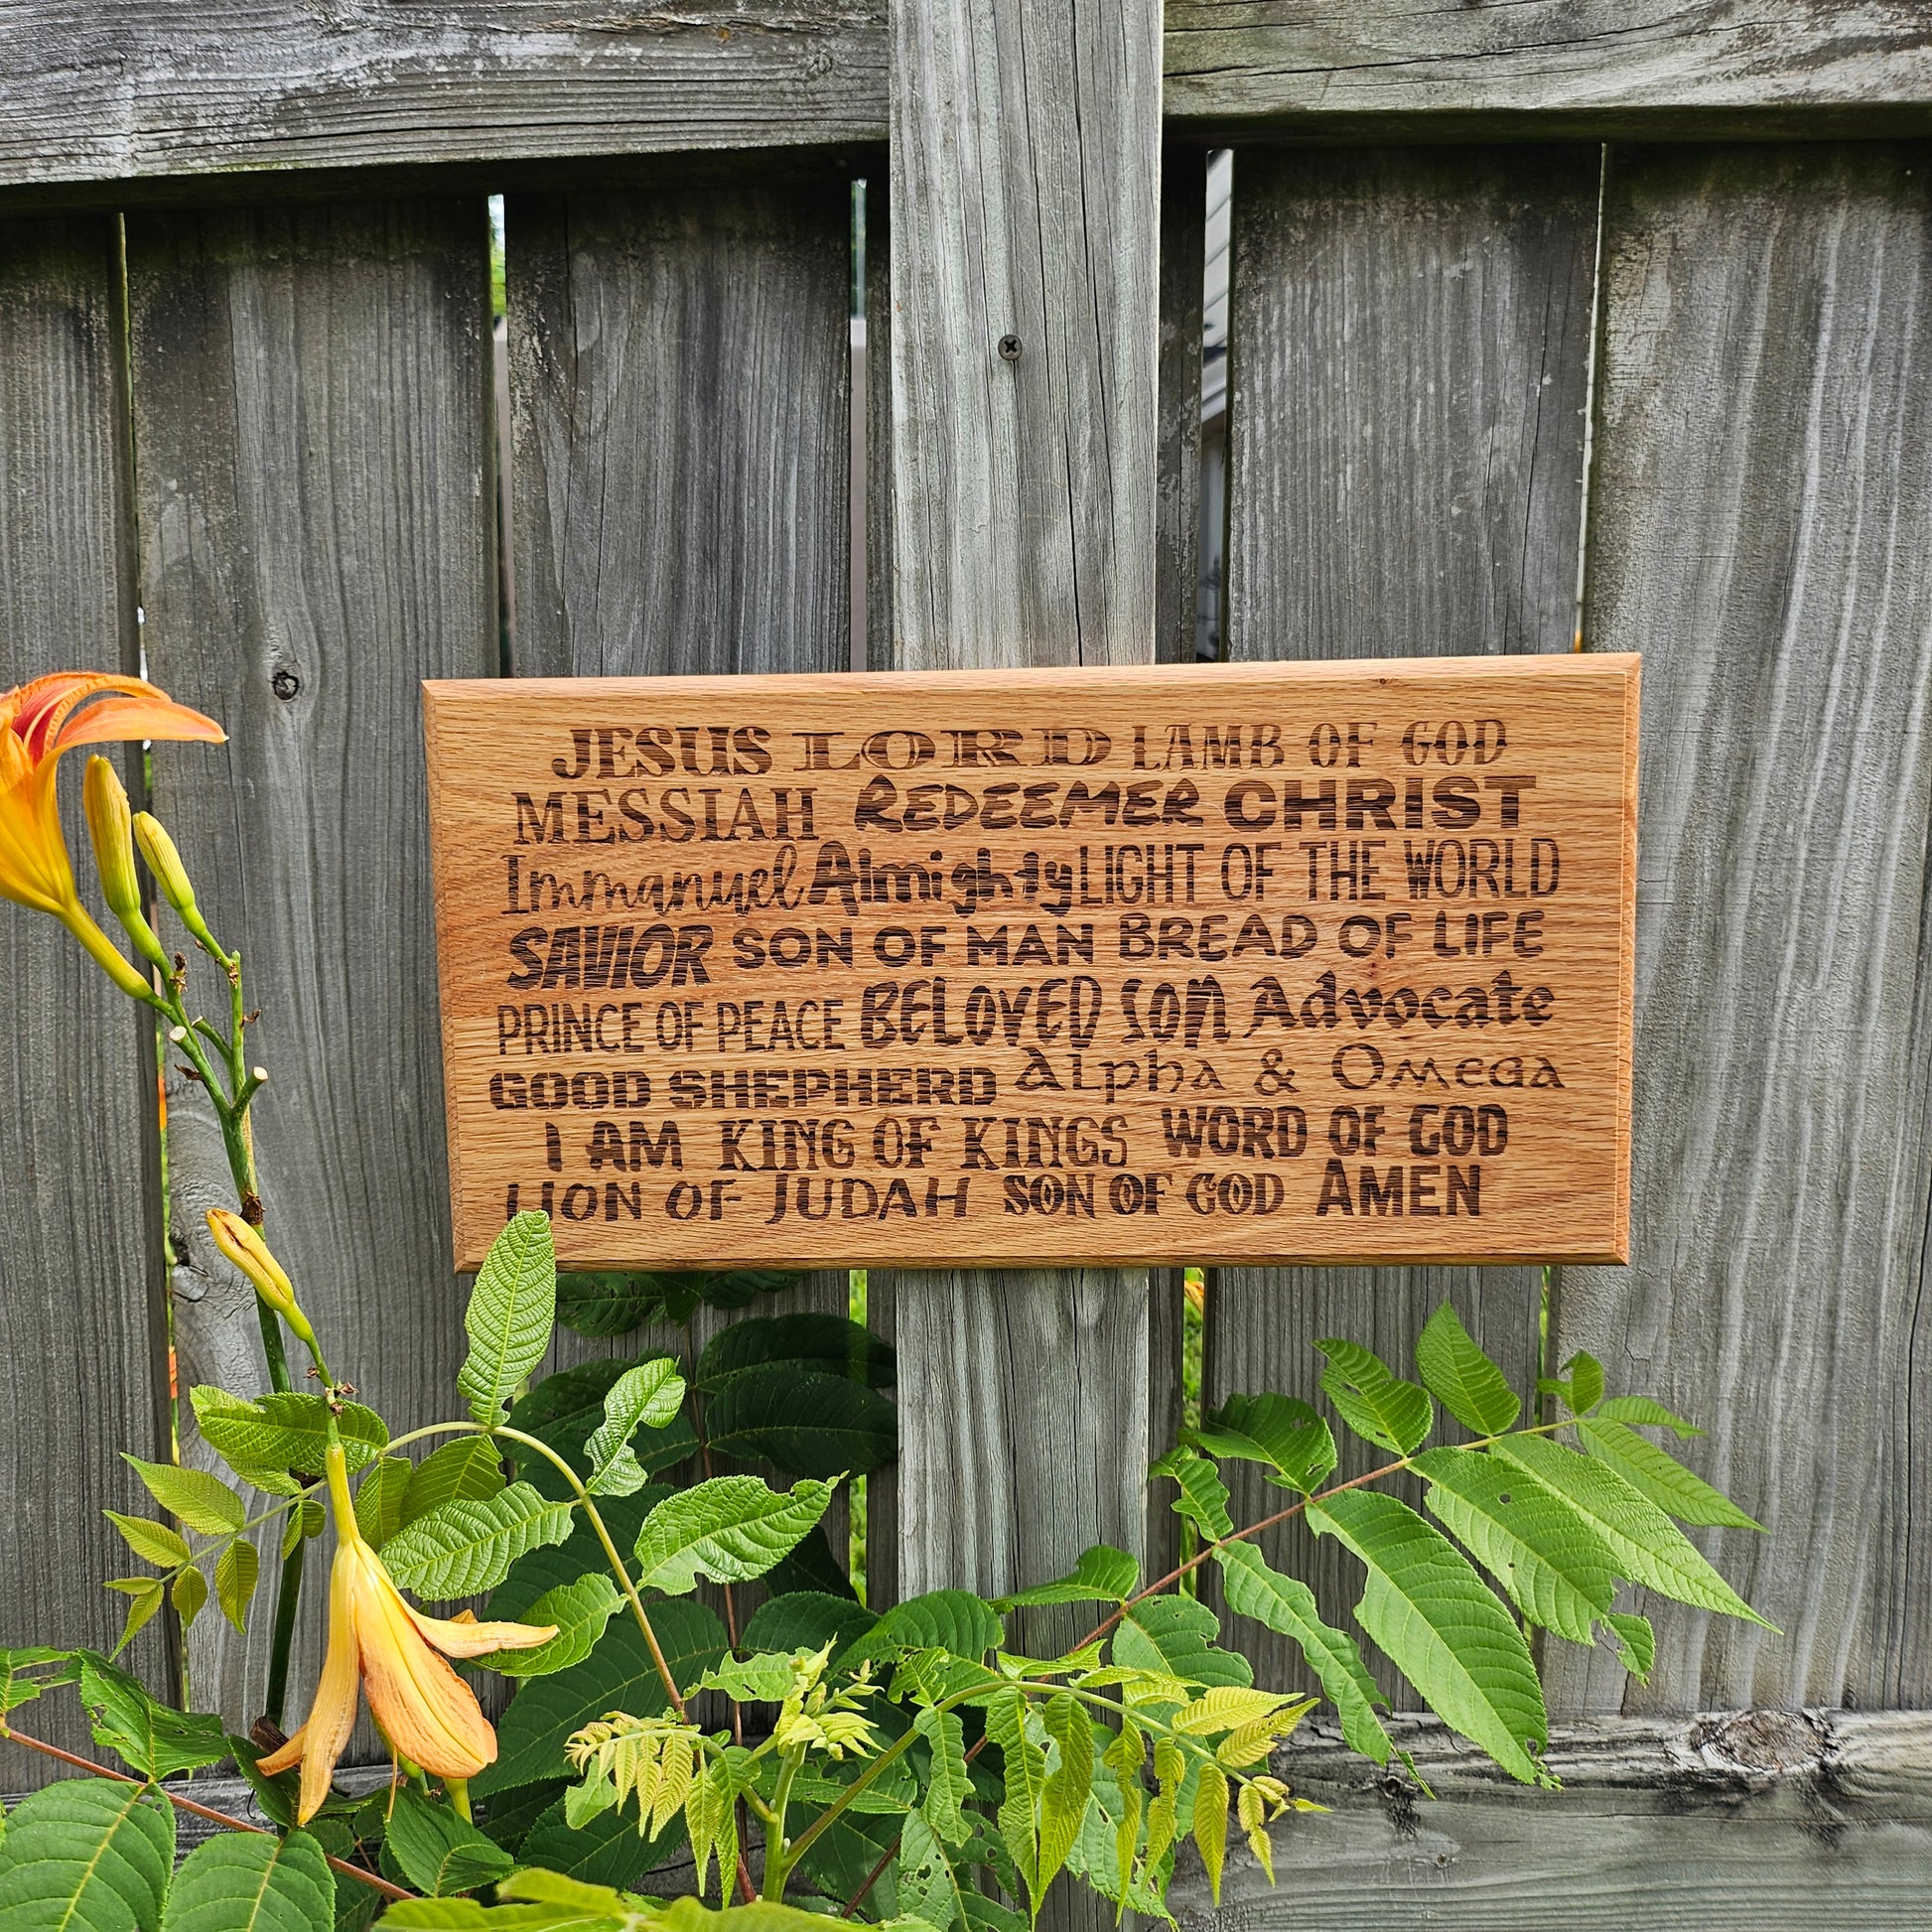 JESUS LORD LAMB OF GOD
MESSIAH REDEEMER CHRIST
Immanuel Almighty LIGHT OF THE WORLD
SAVIOR SON OF MAN BREAD OF LIFE
PRINCE OF PEACE BELOVED SON Advocate
GOOD SHEPHERD Alpha & Omega
I AM KING OF KINGS WORD OF GOD
LION OF JUDAH SON OF GOD AMEN